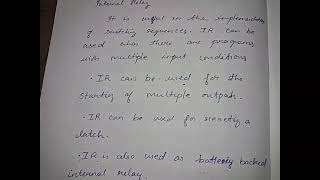 Internal Relay
It is useful in the implementation
of switching sequences. IR can be
used when there are programs
with multiple input conditions
• IR can be used for the
starting of multiple outputs.
• IR can be used for resetting a
latch.
• IR is also used as battery backed
internal relay.